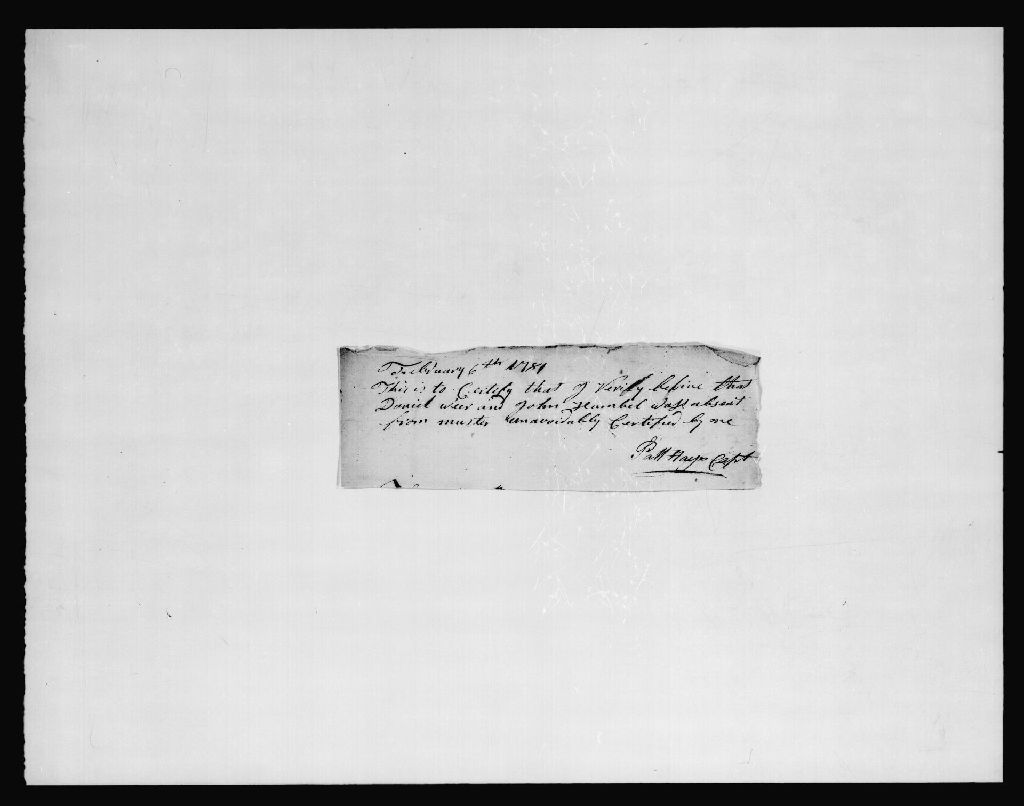 February 6th 1781
This is to Certify that I Verify believe that
Daniel weir and John Hambel wass absent
from muster unavoidably Certified by me
Patt Hays Capt